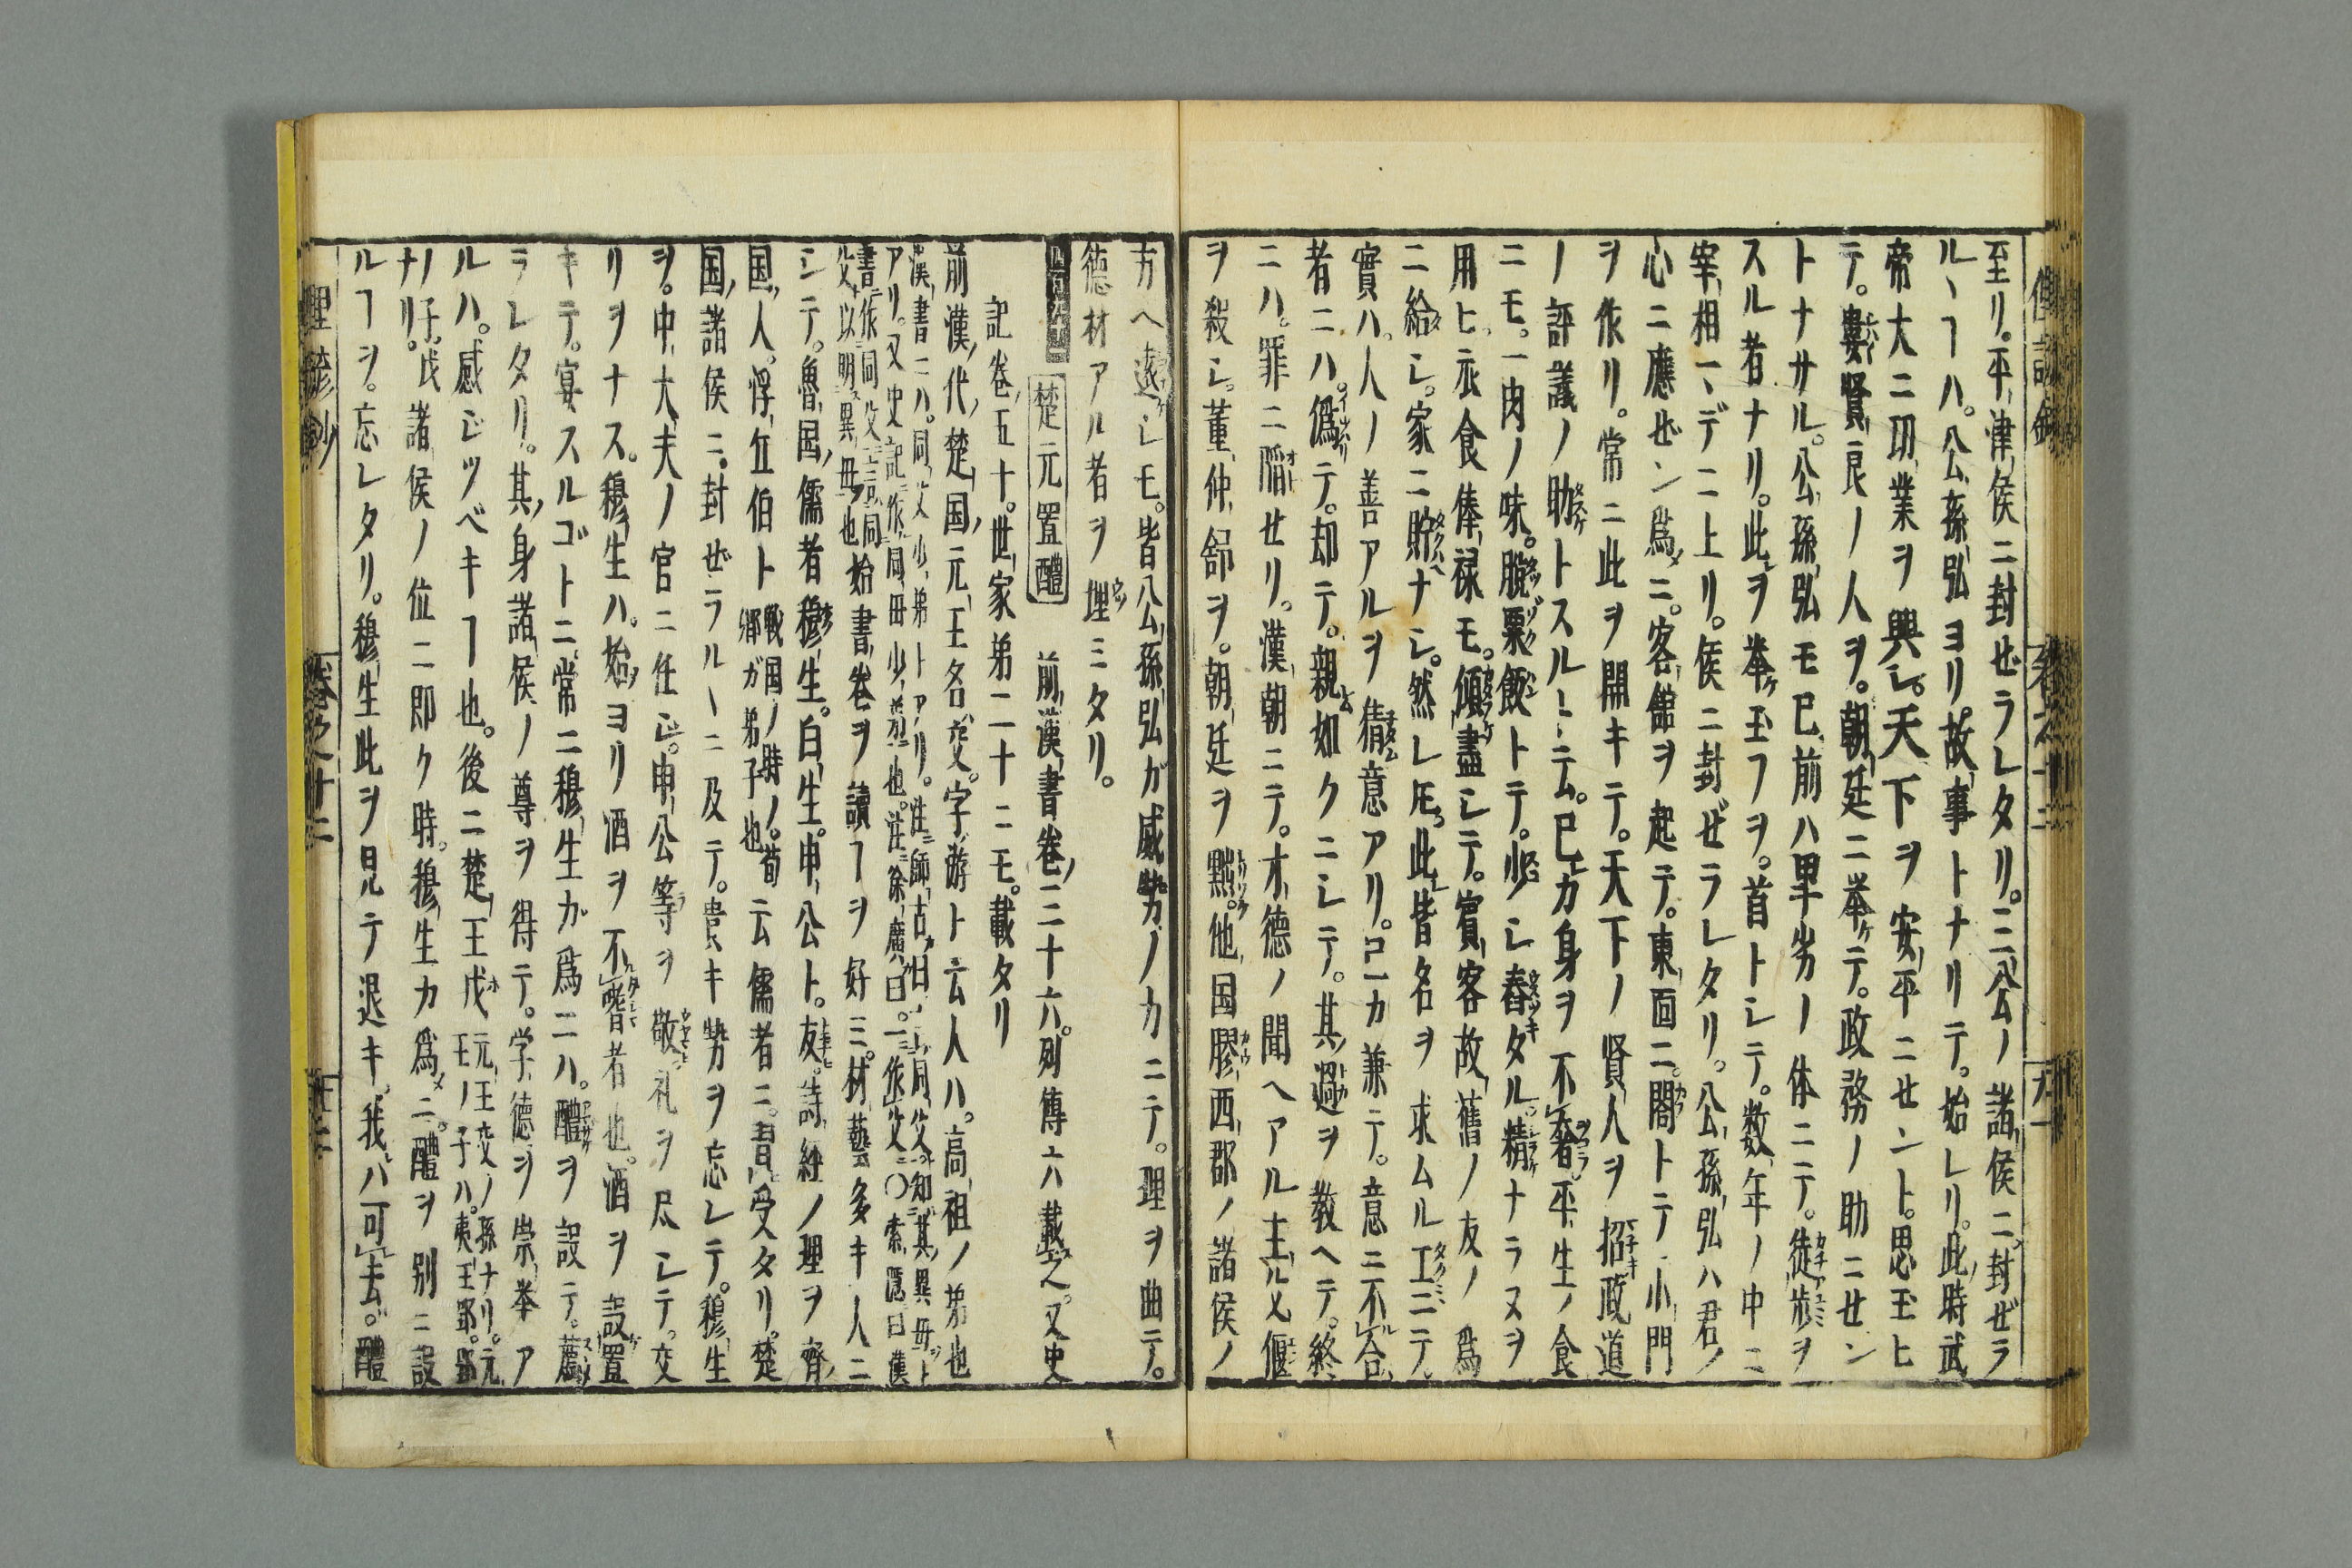 至リ。平津侯ニ封ゼラレタリ。三公ノ諸侯ニ封ゼラ
ルヽヿハ。公孫弘ヨリ。故事トナリテ。始レリ。此時武
帝大ニ功業ヲ興シ。天下ヲ安平ニセント。思玉ヒ
テ。婁賢良ノ人ヲ。朝廷ニ挙テ。政務ノ助ニセン
トナサル。公孫弘モ已前ハ卑劣ノ体ニテ。徒歩ヲ
スル者ナリ。此ヲ挙玉フヲ。首トシテ。数年ノ中ニ
宰相ニヽデニ上リ。侯ニ封ゼラレタリ。公孫弘ハ君ノ
心ニ應ゼン為ニ。客舘ヲ起テ。東面ニ。閤トテ小門
ヲ作リ。常ニ此ヲ開キテ。天下ノ賢人ヲ招政道
ノ評議ノ助トスルト云。已カ身ヲ不奢平生ノ食
ニモ。一肉ノ味。脱粟飯トテ。少シ舂タル。精ナラヌヲ
用ヒ。衣食俸禄モ。傾盡シテ。賓客故舊ノ友ノ為
ニ給シ。家ニ貯ナシ。然レ𪜈。此皆名ヲ求ムル工ニテ。
實ハ。人ノ善アルヲ猜意アリ。己カ兼テ。意ニ不合
者ニハ。偽テ。却テ。親如クニシテ。其過ヲ教ヘテ。終
ニハ。罪ニ陥セリ。漢朝ニテ。才德ノ聞ヘアル主父偃
ヲ殺シ。董仲舒ヲ。朝廷ヲ黙。他国膠西郡ノ諸侯ノ
方ヘ遠シモ。皆公孫弘ガ威勢ノカニテ。理ヲ曲テ。
德材アル者ヲ埋ミタリ。
楚元置醴 前漢書巻三十六。列傳六載之。又史
記巻五十。世家弟二十ニモ。載タリ
前漢代楚国元王名交。字游ト云人ハ。高祖ノ弟也
漢書ニハ。同父少弟トアリ。注師古曰。言同父知其異母ト
アリ。又史記作同母少弟也。注徐廣曰。一作父〇索隠曰漢
書作同父言同
父以明異母也 始書巻ヲ讀ヿヲ好ミ。材藝多キ人ニ
シテ。魯国儒者穆生。白生。申公ト。友。詩經ノ理ヲ齊
国人。浮丘伯ト 戦国ノ時ノ。荀
卿ガ弟子也 云儒者ニ。習受タリ。楚
国諸侯ニ。封ゼラルヽニ及テ。貴キ勢ヲ忘レテ。穆生
ヲ。中大夫ノ官ニ任ジ。申公等ヲ敬礼ヲ尽シテ。交
リヲナス。穆生ハ。始ヨリ酒ヲ不嗜者也。酒ヲ設置
キテ。宴スルゴトニ常ニ穆生ガ為ニハ。醴ヲ設テ。薦
ラレタリ。其身諸侯ノ尊ヲ得テ。学德ヲ崇挙ア
ルハ。感ジツベキヿ也。後ニ楚王戊 元王交ノ孫ナリ。元
王ノ子ハ。夷王郢。郢
ノ子。戊
ナリ。 諸侯ノ位ニ即ク時。穆生カ為ニ。醴ヲ别ニ設
ルヿヲ。忘レタリ。穆生此ヲ見テ退キ。我ハ可去。醴
巻之十二